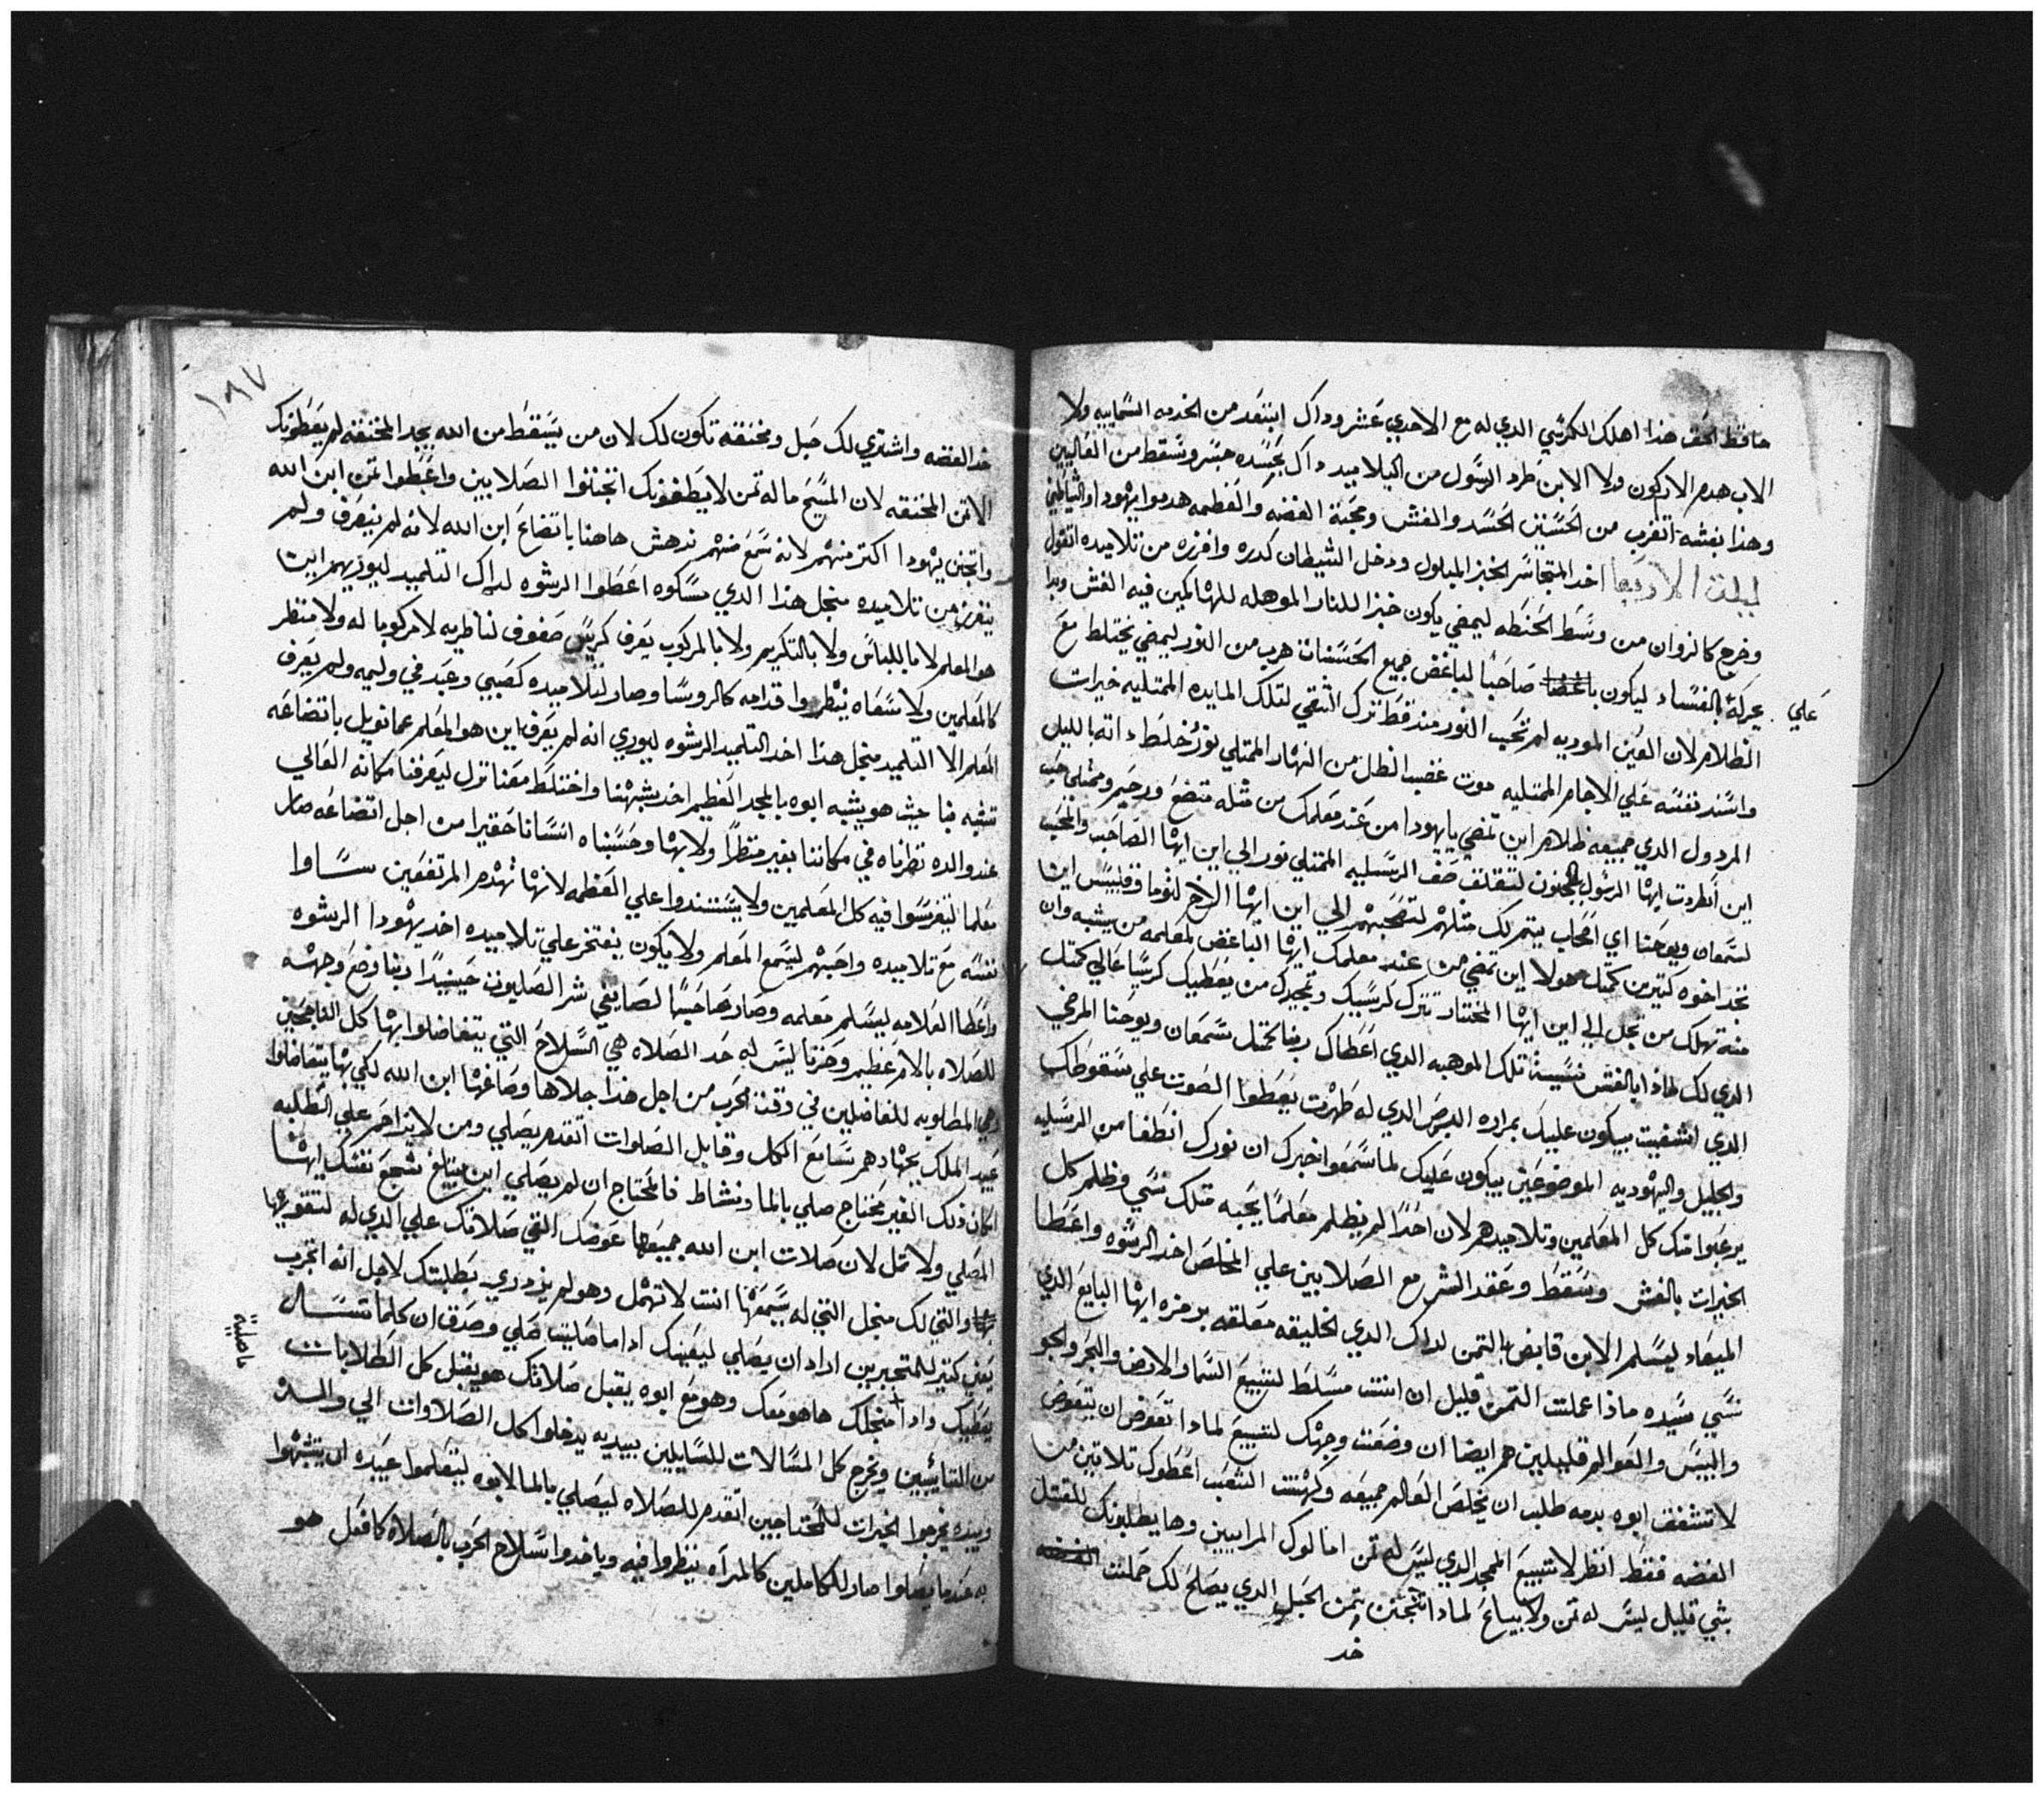 حافظ الحق هذا اهلك الكرسي الدي له مع الاحدي عشر وداك ابتعد من الخدمه السمايه ولا
الاب هدم الاركون ولا الابن طرد الرسول من التلاميد داك بحسده خسر وسقط من العاليين
وهدا بغشه اتغرب من الحسنين الحسد والغش ومحبة الفضه والعظمه هدموا يهودا والشياطين
ليلة الاربعا اخد المتجاسر الخبز المبلول ودخل الشيطان كدره وافرزه من تلاميده اتقول
وخرج كالزوان من وسط الحنطه ليمضي يكون خبزا للنار الموهله للهالكين فيه الغش وبدا
علي
يحركه بالفساد ليكون صاحبا لباغض جميع الحسنات هرب من النور ليمضي يختلط مع
الظلام لان العين الموديه لم تحب النور مند قط ترك التقي لتلك المايده الممتليه خيرات
واسند نفسه علي الاجام الممتليه موت غضب الظل من النهار الممتلي نور خلط داته بالليل
المردول الدي جميعه ظلام اين تمضي يا يهودا من عند معلمك من مثله متضع ورحيم وممتلي حب
اين انطردت ايها الرسول المجنون لتقلق صف الرسليه الممتلي نور الي اين ايها الصاحب والمحب
لسمعان ويوحنا اي اصحاب يتم لك مثلهم لتصحبهم الي اين ايها الاخ لتوما وفيلبس اين
تجد اخوه كتيرين كمتل هولا اين تمضي من عند معلمك ايها الباغض لمعلمه من يشبه وان
منه تهلك من تجل الي اين ايها المختار تترك كرسيك وتمجيدك من يعطيك كرسيا عالي كمتل
الدي لك لمادا بالغش نسيت تلك الموهبه الدي اعطاك ربنا كمتل سمعان ويوحنا المرضي
الدي اشفيت يبكون عليك بمراره البرص الدي له طهرت يعطوا الصوت علي سقوطك
والجليل واليهوديه الموضوعين يبكون عليك لما سمعوا خبرك ان نورك انطفا من الرسليه
يرعبوا منك كل المعلمين وتلاميدهم لان احدا لم يظلم معلما يحبه متلك نسي وظلم كل
الخيرات بالغش وسقط وعقد الشر مع الصلابين علي المخلص اخد الرشوه واعطا
الميعاد ليسلم الابن قابض التمن لداك الدي الخليقه معلقه برمزه ايها البايع الدي
نسي سيده مادا عملت التمن قليل ان انت مسلط لتبيع السما والارض والبحر والجو
واليبس والعوالم قليلين هم ايضا ان وضعت وجهك لتبيع لمادا تعوض ان يتعوض
لا تشفق ابوه بدمه طلب ان يخلص العالم جميعه وكهنت الشعب اعطوك تلاتين من
الفضه فقط انظر لا تتبيع الممجد الدي ليس له تمن امالوك المرايين وها يطلبونك للمقتل
بشي قليل ليس له تمن ولا يباع لمادا اتجننت بتمن الحبل الدي يصلح لك حملت
خد
١٨٧
خد الفضه واشتري لك حبل ومخنقه تكون لك لان من يسقط من الله يجد المخنقه لم يعطونك
الا تمن المخنقه لان المسيح ما له تمن لا يطغونك اتجننوا الصلابين واعطوا تمن ابن الله
واتجنن يهودا اكتر منهم لانه سمع منهم ندهش هاهنا باتضاع ابن الله لانه لم ينعرف ولم
ينفرز من تلاميده منجل هدا الدي مسكوه اعطوا الرشوه لداك التلميد ليوريهم اين
هو المعلم لا باللباس ولا بالتكريم ولا بالمركوب يعرف كريس صفوف لناظريه لا مركوبا له ولا منظر
كالمعلمين ولا سعاه ينظروا قدامه كالروسا وصار لتلاميده كصبي وعبد في وليمه ولم يعرف
المعلم الا التلميد منجل هدا اخد التلميد الرشوه ليوري انه لم يعرف اين هو المعلم عمانويل باتضاعه
تشبه بنا حيث هو يشبه ابوه بالمجد العظيم اخد شبهنا واختلط معنا نزل ليعرفنا مكانه العالي
عند والده نظرناه في مكاننا بغير منظر ولا بها وحسبناه انسانا حقيرا من اجل اتضاعه صار
معلما ليتفرسوا فيه كل المعلمين ولا يستندوا علي العظمه لانها تهدم المرتفعين ساوا
نفسه مع تلاميده واحبهم ليسمع المعلم ولا يكون يفتخر علي تلاميده اخد يهودا الرشوه
واعطا العلامه ليسلم معلمه وصار صاحبا لصايغي شر الصليون حينيدا ربنا وضع وجهه
للصلاه بالام عظيم وحزنا ليس له حد الصلاه هي السلاح التي يتفاضلوا بها كل الناجحين
هي المطلوبه للفاضلين في وقت الحرب من اجل هدا جلاها وصاغها ابن الله لكي بها يتفاضلوا
عبيد الملك بجهادهم سامع الكل وقابل الصلوات اتقدم يصلي ومن لا يتراحم علي الطلبه
اكان دلك الغير محتاج صلي بالما ونشاط فالمحتاج ان لم يصلي اين يبلغ شجع نفسك ايها
المصلي ولا تمل لان صلات ابن الله جميعها عوضك التقي صلاتك علي الدي له لتقويها
والتي لك منجل التي له يسمعها انت لا تهمل وهو لم يزدري بطلبتك لاجل انه اتجرب
يعين كتير للمتجبرين اراد ان يصلي ليعينك ادا ما صليت صلي وصدق ان كلما تسال
يعطيك وادا منجلك هاهو معك وهو مع ابوه يقبل صلاتك هو يقبل كل الطلابات
من التايبين ويخرج كل المسالات للسايلين بيديه يدخلوا كل الصلاوات الي والده
وبيده يخرجوا الخيرات للمحتاجين اتقدم للصلاه ليصلي بالما لابوه ليتعلموا عبيده ان يتشبهوا
به عندما يصلوا صار للكاملين كالمراه ينظروا فيه وياخدوا سلاح الحرب بالصلاه كما فعل هو